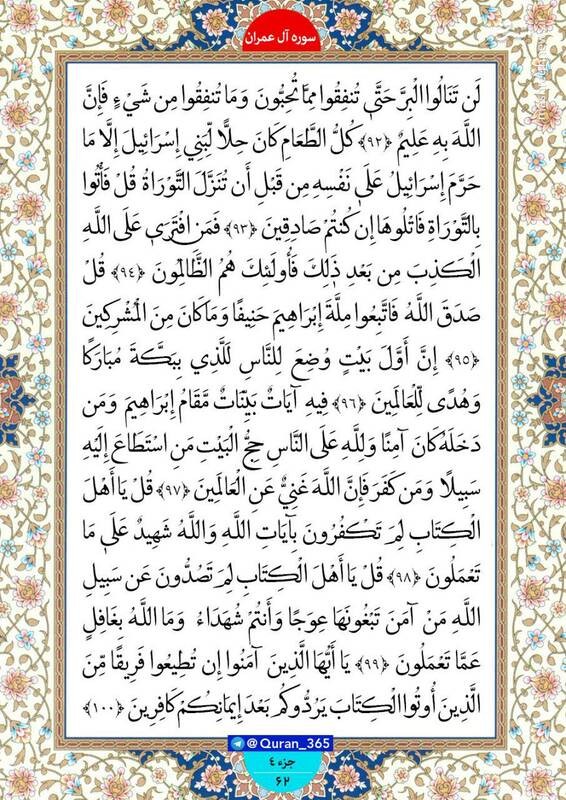 سوره آل عمران
لَن تَنَالُوا الْبِرَّ حَتَّىٰ تُنفِقُوا مِمَّا تُحِبُّونَ وَمَا تُنفِقُوا مِن شَيْءٍ فَإِنَّ
اللَّهَ بِهِ عَلِيمٌ ﴿٩٢﴾ كُلُّ الطَّعَامِ كَانَ حِلًّا لِّبَنِي إِسْرَائِيلَ إِلَّا مَا
حَرَّمَ إِسْرَائِيلُ عَلَىٰ نَفْسِهِ مِن قَبْلِ أَن تُنَزَّلَ التَّوْرَاةُ قُلْ فَأْتُوا
بِالتَّوْرَاةِ فَاتْلُوهَا إِن كُنتُمْ صَادِقِينَ ﴿٩٣﴾ فَمَنِ افْتَرَىٰ عَلَى اللَّهِ
الْكَذِبَ مِن بَعْدِ ذَٰلِكَ فَأُولَٰئِكَ هُمُ الظَّالِمُونَ ﴿٩٤﴾ قُلْ
صَدَقَ اللَّهُ فَاتَّبِعُوا مِلَّةَ إِبْرَاهِيمَ حَنِيفًا وَمَا كَانَ مِنَ الْمُشْرِكِينَ
﴿٩٥﴾ إِنَّ أَوَّلَ بَيْتٍ وُضِعَ لِلنَّاسِ لَلَّذِي بِبَكَّةَ مُبَارَكًا
وَهُدًى لِّلْعَالَمِينَ ﴿٩٦﴾ فِيهِ آيَاتٌ بَيِّنَاتٌ مَّقَامُ إِبْرَاهِيمَ وَمَن
دَخَلَهُ كَانَ آمِنًا وَلِلَّهِ عَلَى النَّاسِ حِجُّ الْبَيْتِ مَنِ اسْتَطَاعَ إِلَيْهِ
سَبِيلًا وَمَن كَفَرَ فَإِنَّ اللَّهَ غَنِيٌّ عَنِ الْعَالَمِينَ ﴿٩٧﴾ قُلْ يَا أَهْلَ
الْكِتَابِ لِمَ تَكْفُرُونَ بِآيَاتِ اللَّهِ وَاللَّهُ شَهِيدٌ عَلَىٰ مَا
تَعْمَلُونَ ﴿٩٨﴾ قُلْ يَا أَهْلَ الْكِتَابِ لِمَ تَصُدُّونَ عَن سَبِيلِ
اللَّهِ مَنْ آمَنَ تَبْغُونَهَا عِوَجًا وَأَنتُمْ شُهَدَاءُ وَمَا اللَّهُ بِغَافِلٍ
عَمَّا تَعْمَلُونَ ﴿٩٩﴾ يَا أَيُّهَا الَّذِينَ آمَنُوا إِن تُطِيعُوا فَرِيقًا مِّنَ
الَّذِينَ أُوتُوا الْكِتَابَ يَرُدُّوكُم بَعْدَ إِيمَانِكُمْ كَافِرِينَ ﴿١٠٠﴾
@Quran_365
جزء ٤
٦٢